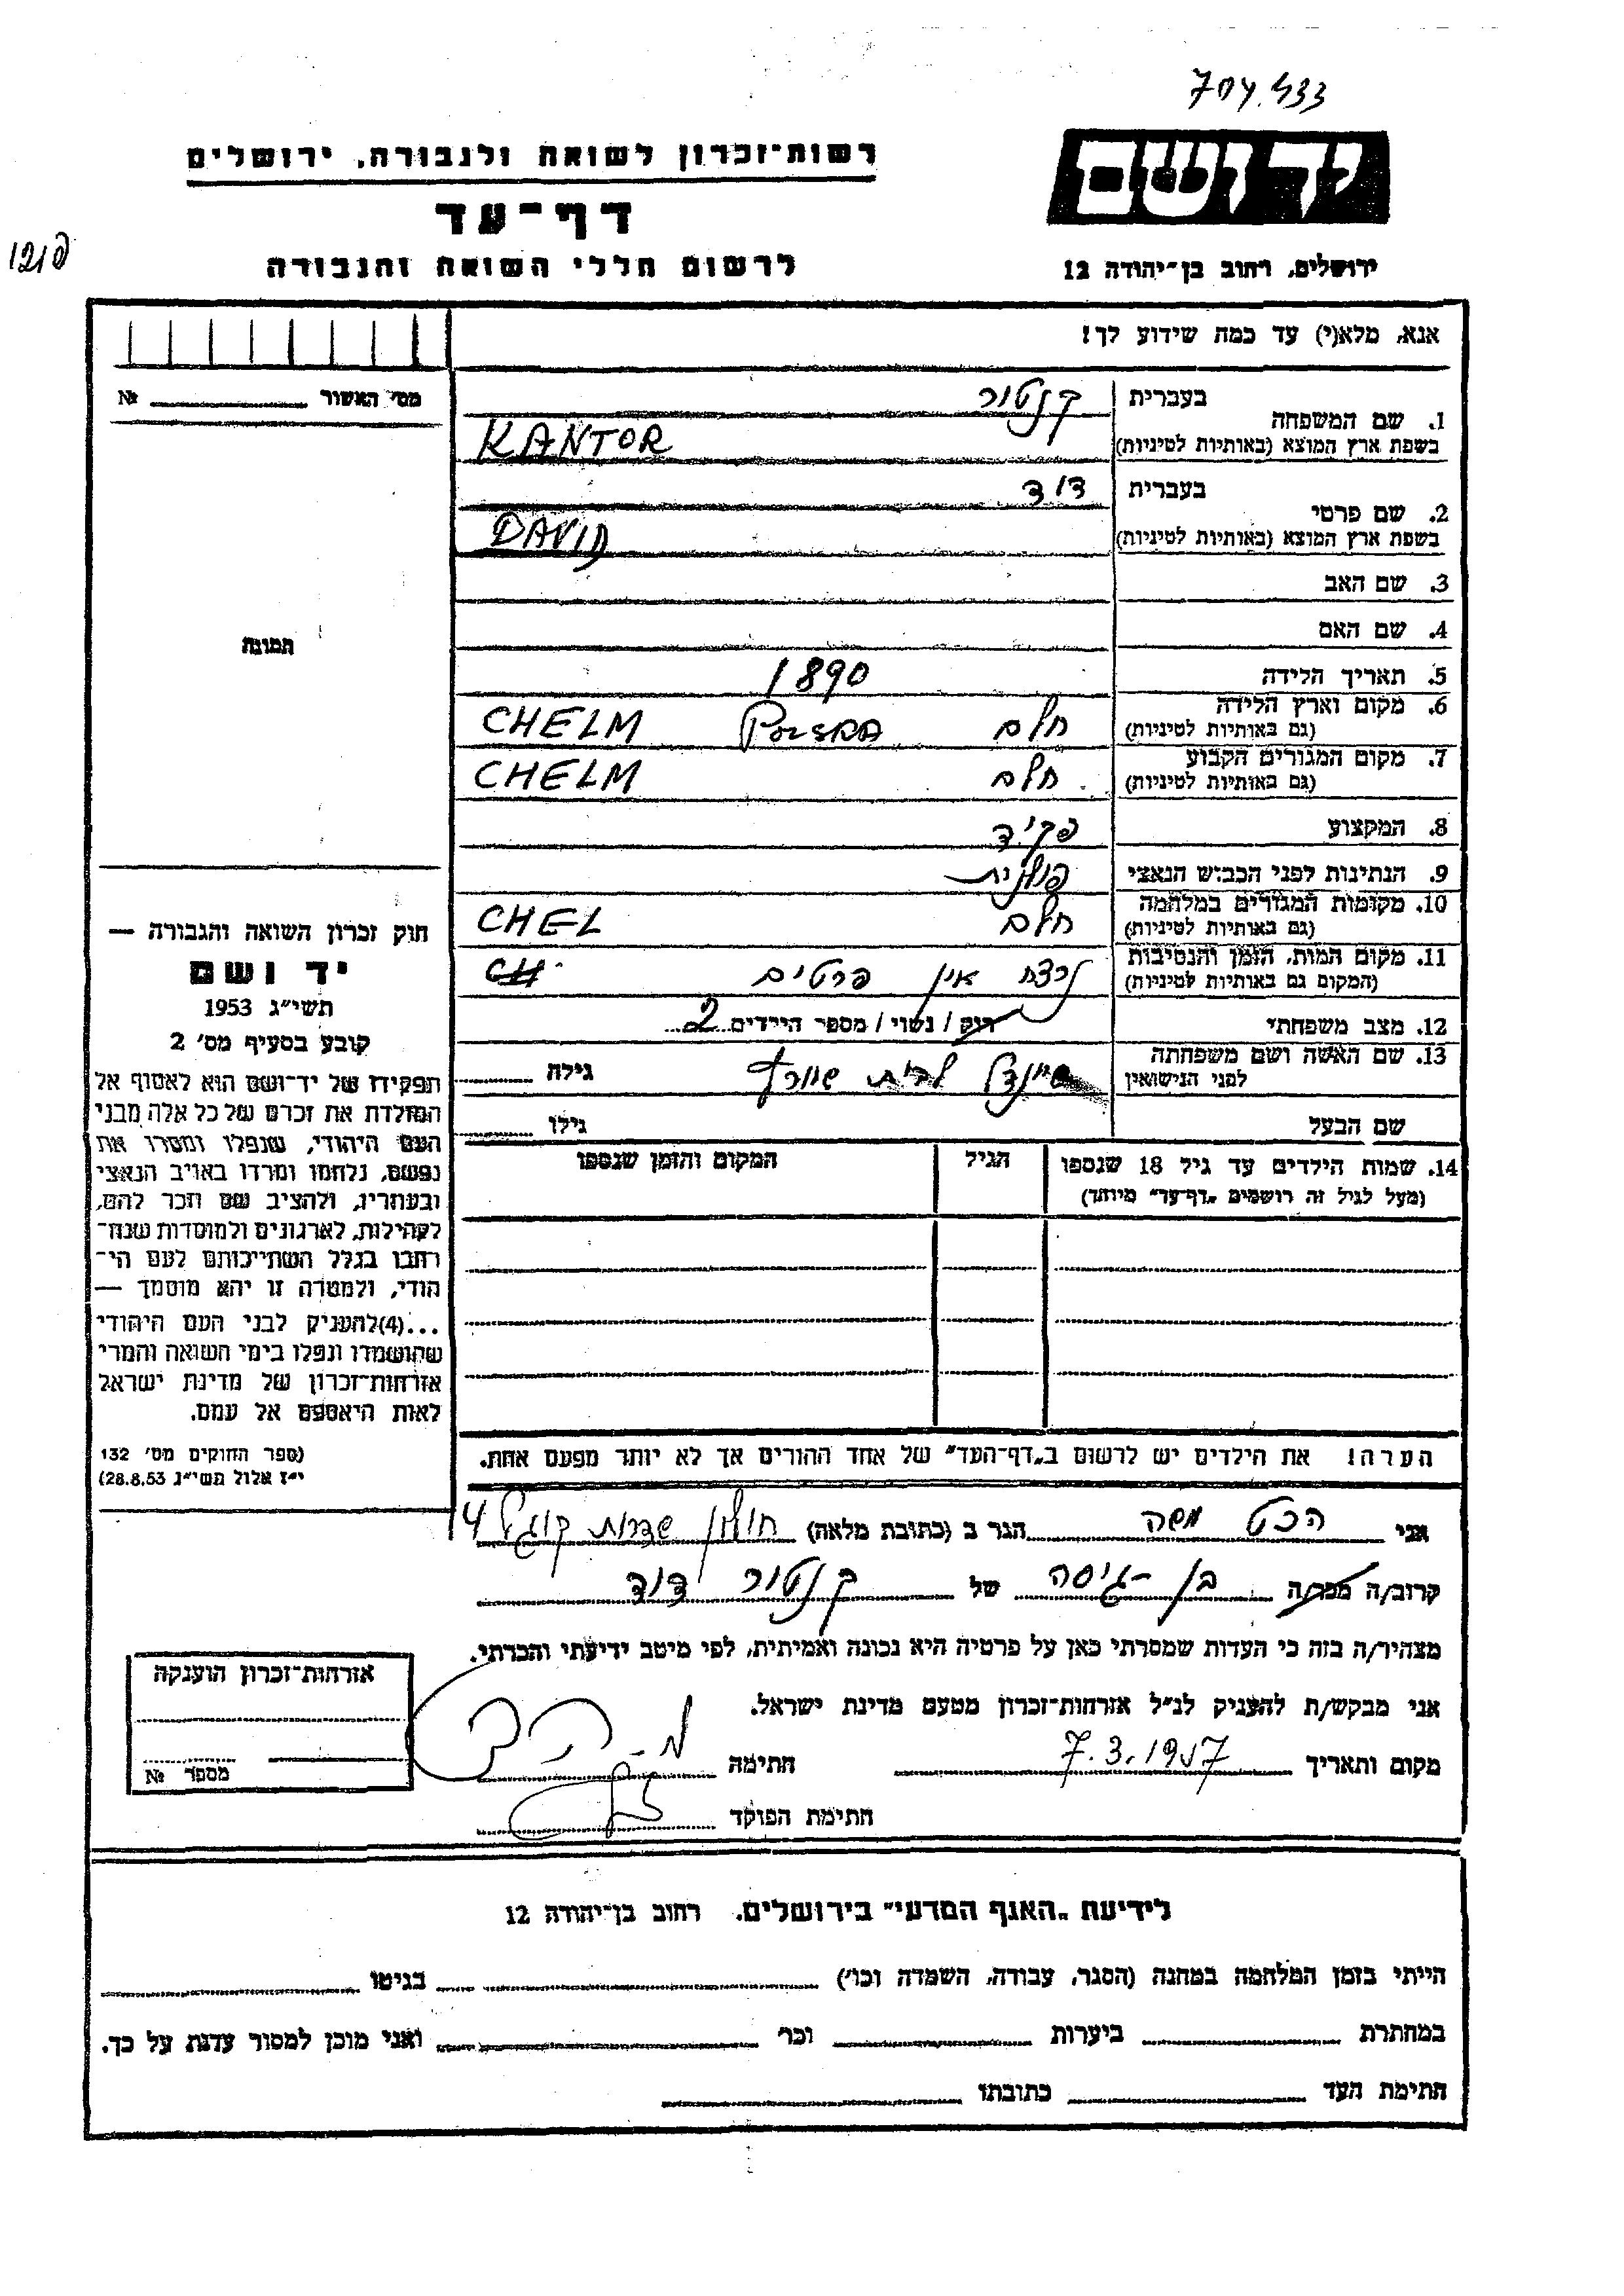 704.433
יד ושם
רשות-זכרון לשואה ולגבורה, ירושלים
דף-עד
לרשום חללי השואה והגבורה
ירושלים, רחוב בן-יהודה 12
אנא, מלא(י) עד כמה שידוע לך!
מס' האשור № 
בעברית קנטור
1. שם המשפחה
בשפת ארץ המוצא (באותיות לטיניות) KANTOR
בעברית דוד
2. שם פרטי
בשפת ארץ המוצא (באותיות לטיניות) DAVID
3. שם האב
4. שם האם
תמונה
5. תאריך הלידה 1890
6. מקום וארץ הלידה חלם POLSKA CHELM
(גם באותיות לטיניות)
7. מקום המגורים הקבוע חלם CHELM
(גם באותיות לטיניות)
8. המקצוע פקיד
9. הנתינות לפני הכבוש הנאצי פולנית
10. מקומות המגורים במלחמה חלם CHEL
(גם באותיות לטיניות)
11. מקום המות, הזמן והנסיבות נרצח אין פרטים CH
(המקום גם באותיות לטיניות)
12. מצב משפחתי רוק / נשוי / מספר הילדים 2
13. שם האשה ושם משפחתה שיינדל לבית שוורץ גילה
לפני הנישואין
שם הבעל גילו
14. שמות הילדים עד גיל 18 שנספו הגיל המקום והזמן שנספו
(מעל לגיל זה רושמים "דף-עד" מיוחד)
חוק זכרון השואה והגבורה —
יד ושם
תשי"ג 1953
קובע בסעיף מס' 2
תפקידו של יד-ושם הוא לאסוף אל
המולדת את זכרם של כל אלה מבני
העם היהודי, שנפלו ומסרו את
נפשם, נלחמו ומרדו באויב הנאצי
ובעוזריו, ולהציב שם וזכר להם,
לקהילות, לארגונים ולמוסדות שנח-
רחבו בגלל השתייכותם לעם הי-
הודי, ולמטרה זו יהא מוסמך —
...(4)להעניק לבני העם היהודי
שהושמדו ונפלו בימי השואה והמרי
אזרחות-זכרון של מדינת ישראל
לאות היאספם אל עמם.
(ספר החוקים מס' 132
י"ז אלול תשי"ג 28.8.53)
הערה! את הילדים יש לרשום ב"דף-העד" של אחד ההורים אך לא יותר מפעם אחת.
אני הכט משה הגר ב (כתובת מלאה) חולון שדרות קוגל 4
קרוב/ה מכר/ה בן-גיסה של קנטור דוד
מצהיר/ה בזה כי העדות שמסרתי כאן על פרטיה היא נכונה ואמיתית, לפי מיטב ידיעתי והכרתי.
אני מבקש/ת להעניק לנ"ל אזרחות-זכרון מטעם מדינת ישראל.
מקום ותאריך 7.3.1957 חתימה
חתימת הפוקד
אזרחות-זכרון הוענקה
מספר №
לידיעת "האגף המדעי" בירושלים. רחוב בן-יהודה 12
הייתי בזמן המלחמה במחנה (הסגר, עבודה, השמדה וכו') בגיטו
במחתרת ביערות וכו' ואני מוכן למסור עדות על כך.
חתימת העד כתובתו